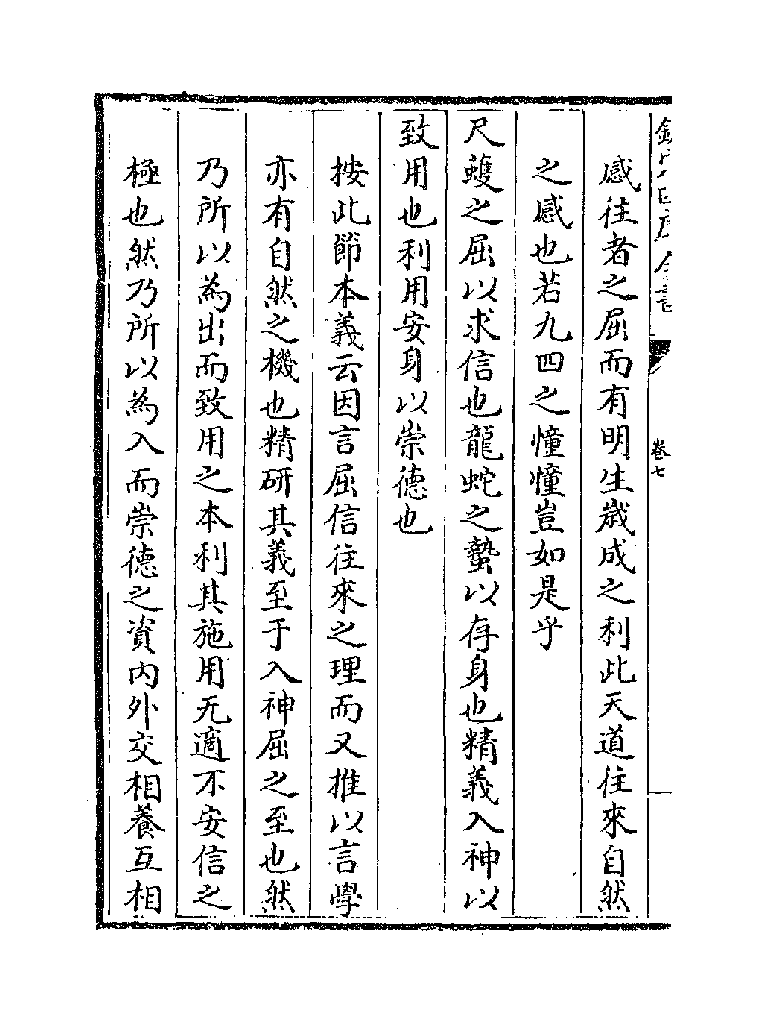 欽定四庫全書
卷七
感往者之屈而有明生歲成之利此天道往來自然
之感也若九四之憧憧豈如是乎
尺蠖之屈以求信也龍蛇之蟄以存身也精義入神以
致用也利用安身以崇德也
按此節本義云因言屈信往來之理而又推以言學
亦有自然之機也精研其義至于入神屈之至也然
乃所以為出而致用之本利其施用无適不安信之
極也然乃所以為入而崇德之資内外交相養互相